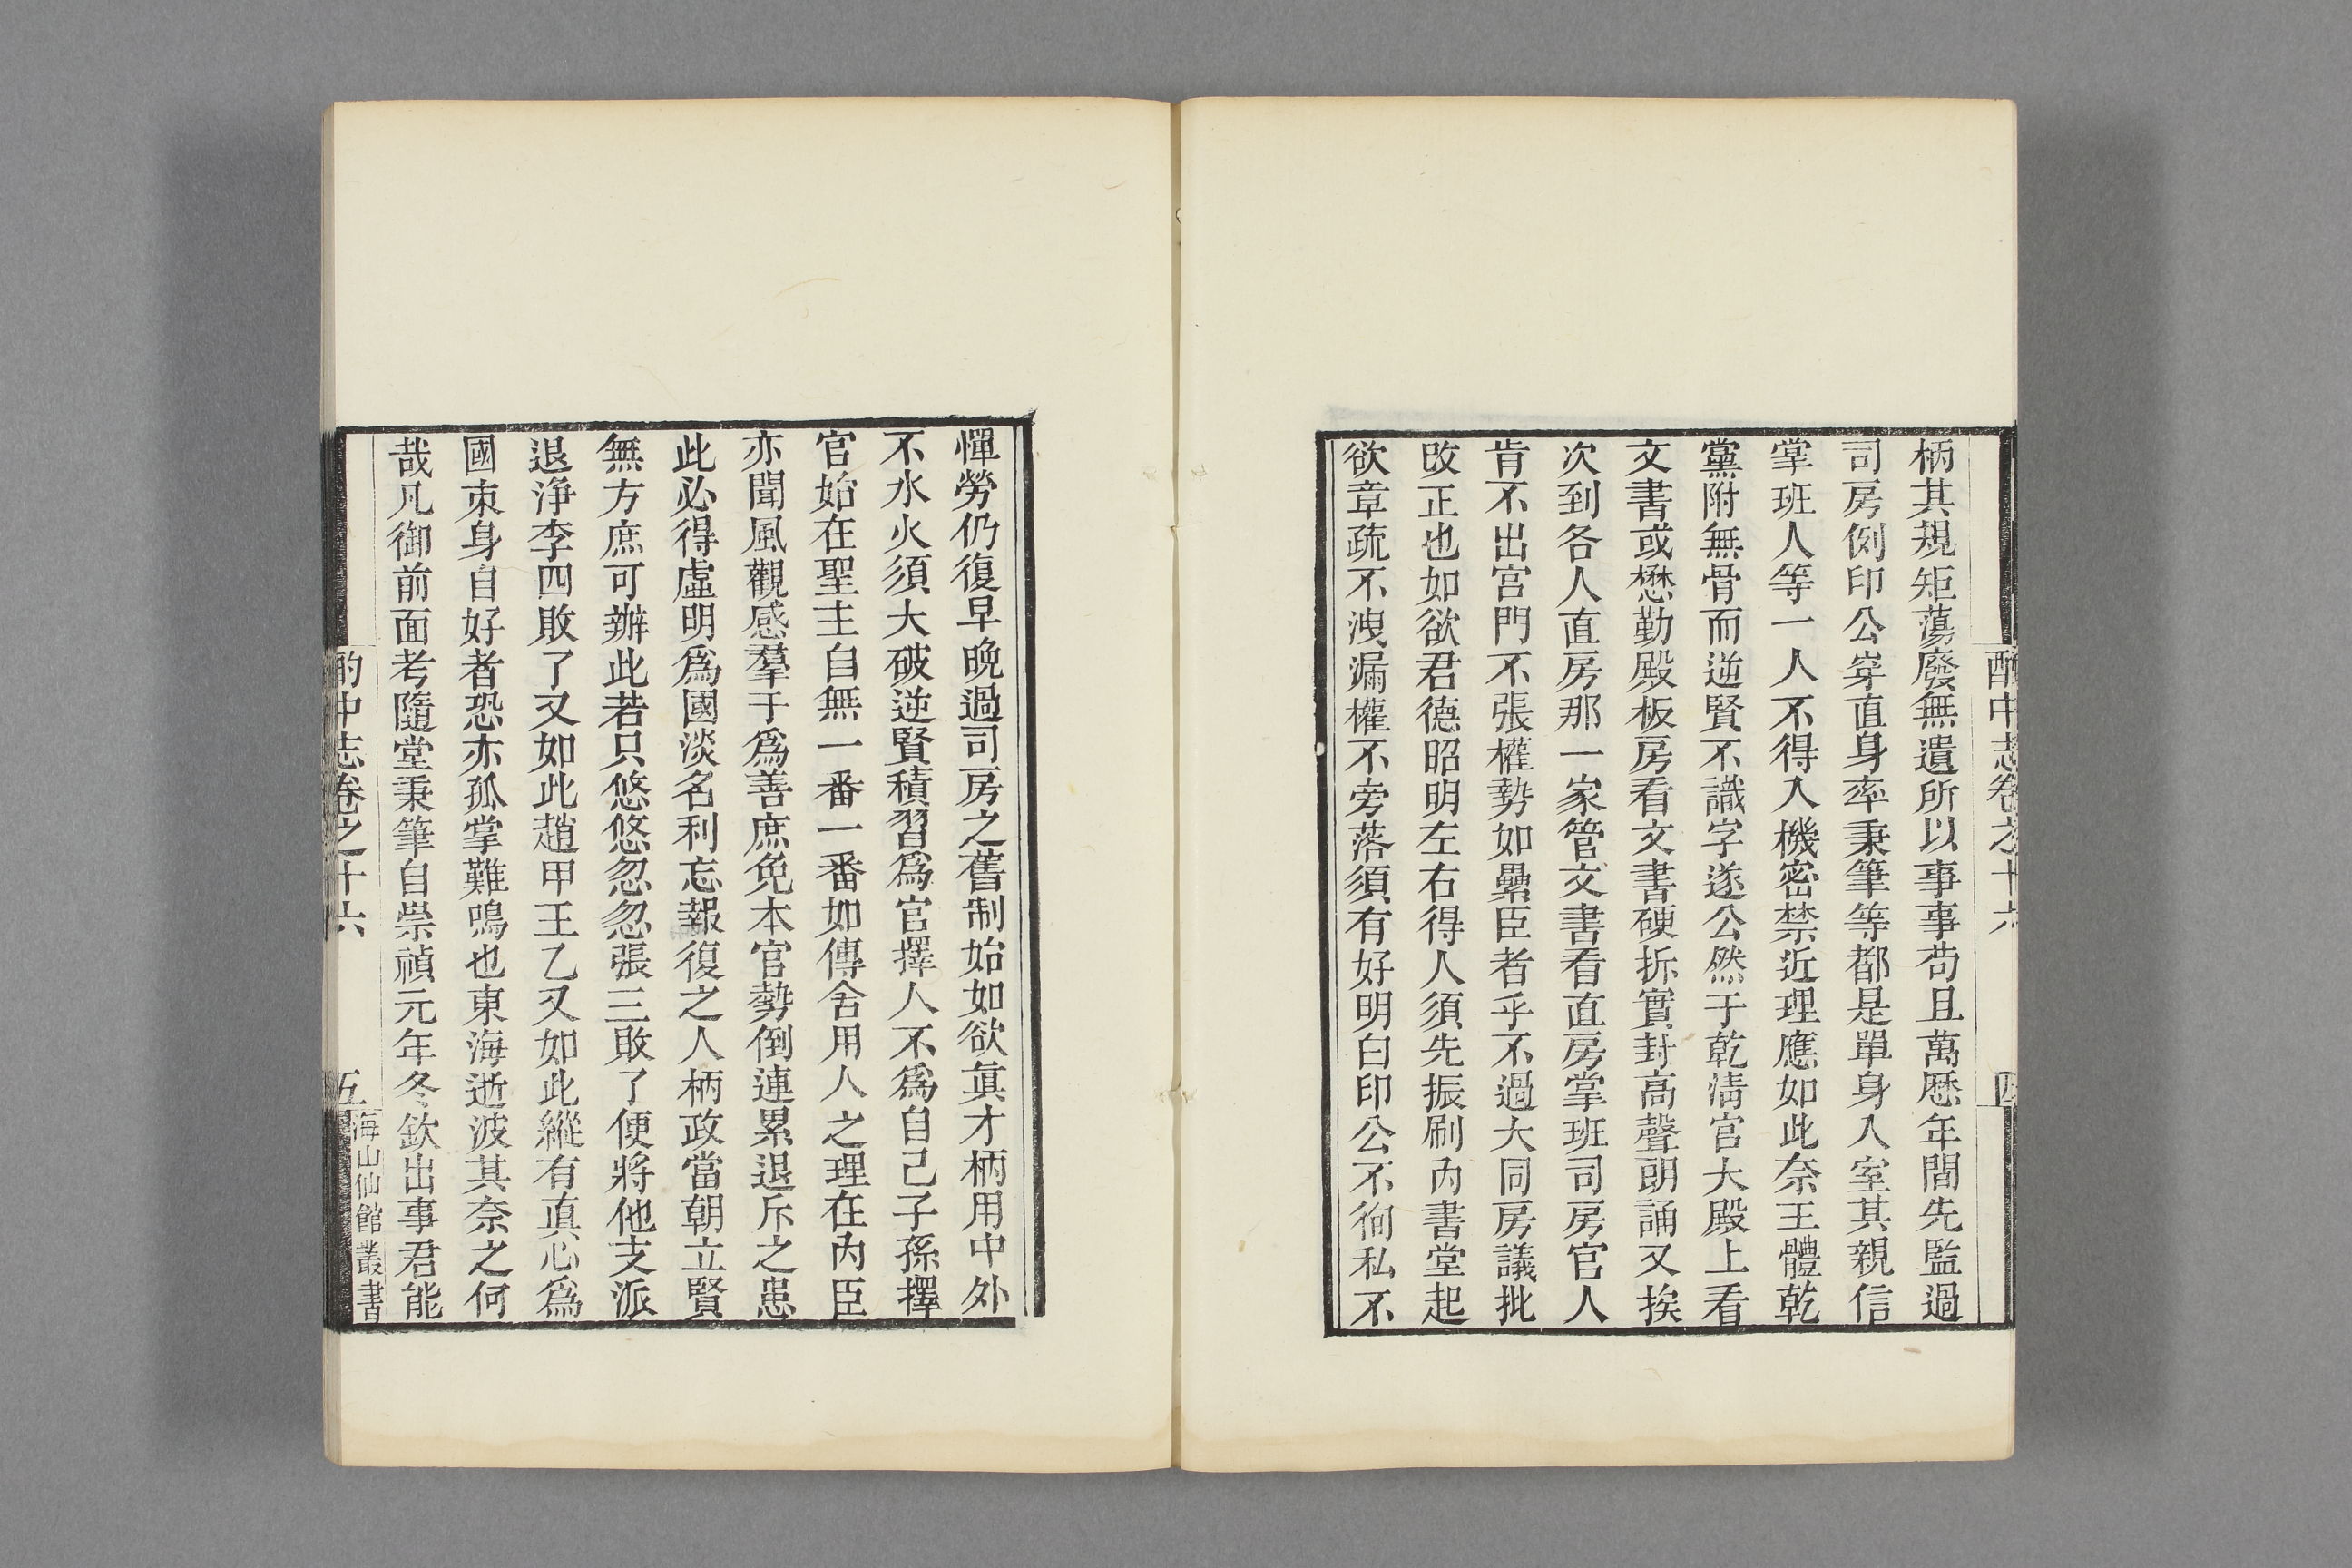 酌中志卷之十六
四
柄其規矩蕩廢無遺所以事事苟且萬厯年間先監過
司房例印公穿直身率秉筆等都是單身入室其親信
掌班人等一人不得入機密禁近理應如此奈王體乾
黨附無骨而逆賢不識字遂公然于乾淸官大殿上看
文書或懋勤殿板房看文書硬拆實封高聲朗誦又挨
次到各人直房那一家管文書看直房掌班司房官人
肯不出宮門不張權勢如纍臣者乎不過大同房議批
改正也如欲君德昭明左右得人須先振刷內書堂起
欲章疏不洩漏權不旁落須有好明白印公不徇私不
憚勞仍復早晚過司房之舊制始如欲眞才柄用中外
不水火須大破逆賢積習爲官擇人不爲自己子孫擇
官始在聖主自無一番一番如傳舍用人之理在內臣
亦聞風觀感羣于爲善庶免本官勢倒連累退斥之患
此必得虛明爲國淡名利忘報復之人柄政當朝立賢
無方庶可辦此若只悠悠忽忽張三敗了便將他支派
退淨李四敗了又如此趙甲王乙又如此縱有眞心爲
國束身自好者恐亦孤掌難鳴也東海逝波其奈之何
哉凡御前面考隨堂秉筆自崇禎元年冬欽出事君能
酌中志卷之十六
五
海山仙館叢書